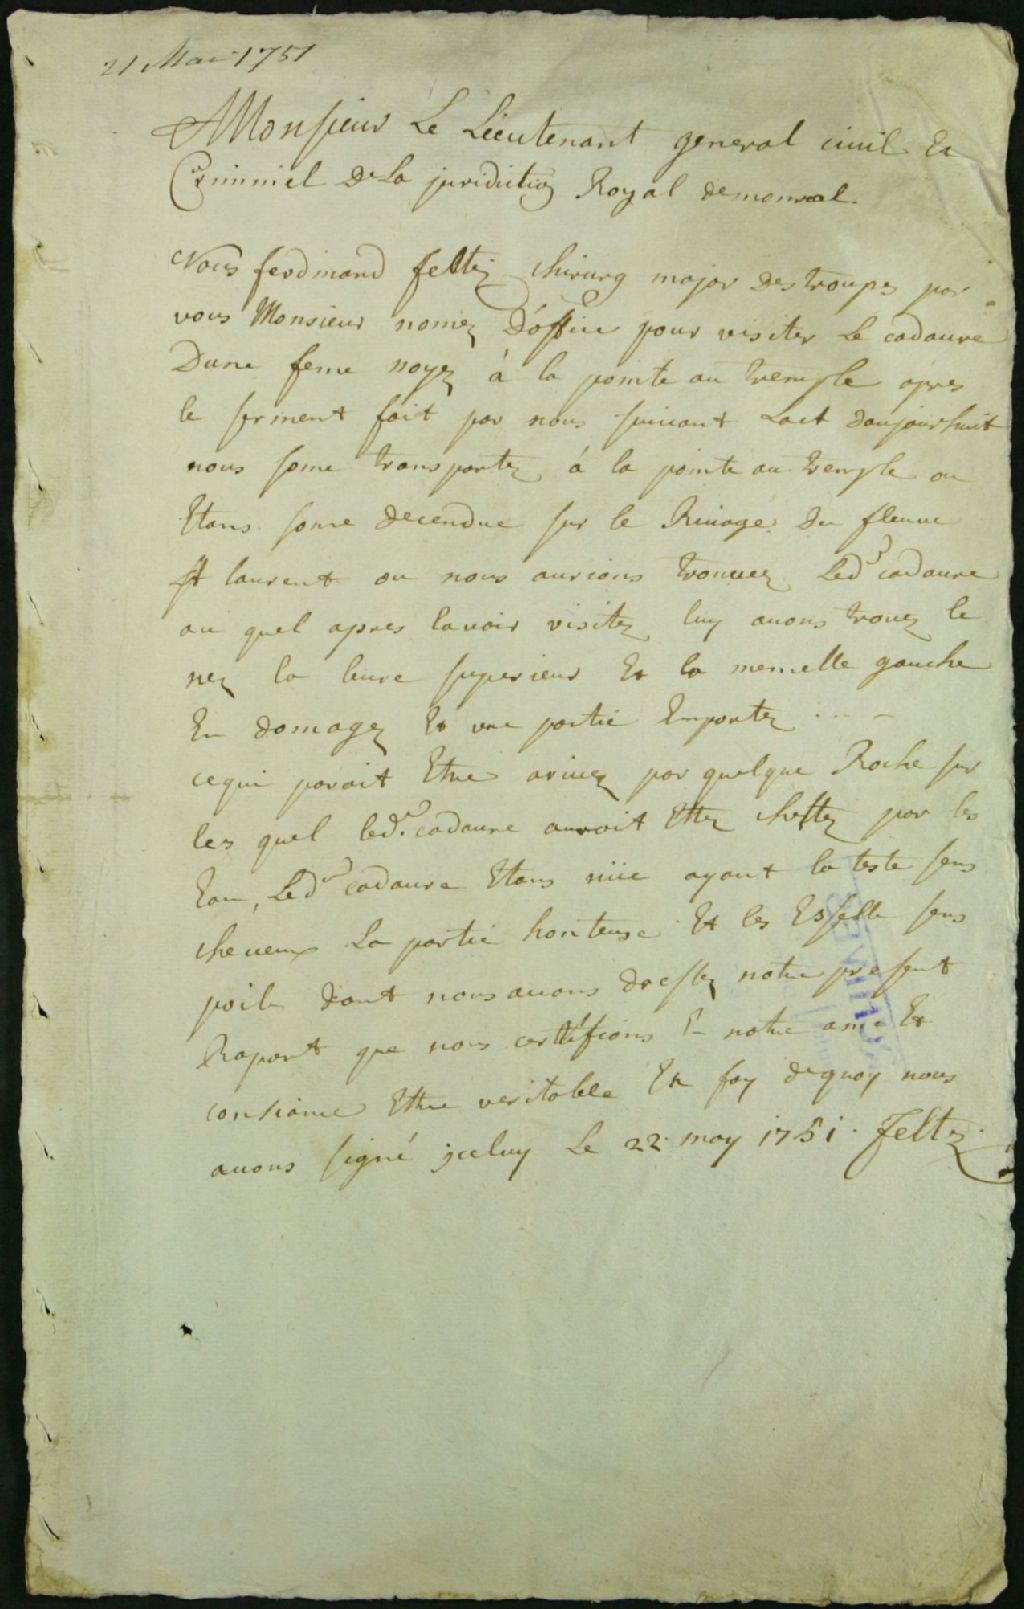 21 Mai 1751
A Monsieur Le Lieutenant general ciuil Et
Criminel De La juridiction Royal de monreal.
Nous ferdinand feltz chirurg major des troupes par
vous Monsieur nomez D'office pour visiter le cadaure
Dune feme noyez á la pointe au tremple apres
le serment fait par nous suiuant Lact daujourhuit
nous some transportez á la pointe au tremple ou
Etans some decendue sur le Riuage du fleuue
St laurent ou nous aurions trouuez Ledt cadaure
au quel apres lauoir visitez luy auons trouez le
nez la leure superieur Et la memelle gauche
En domagez Et vne partie Emportez
cequi paroit Etre ariuez par quelque Roche sur
les quel led. cadaure auroit Ettez jettez par les
Eau, Led cadaure Etans nüe ayant la teste sens
cheueux La partie honteuse Et les Esselle sens
poile dont nous auons dressez notre present
Raport que nous certifions En notre ame Et
consiance Ettre veritable En foy de quoy nous
auons signé jceluy Le 22 may 1751. Feltz
ARCHIVES